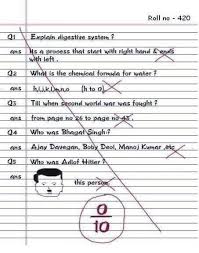 Roll no - 420
Q1 Explain digestive system ?
ans Its a process that start with right hand & ends
with left .
Q2 What is the chemical formula for water ?
ans h,i,j,k,l,m,n,o (h to o)
Q3 Till when second world war was fought ?
ans from page no 26 to page no 43 .
Q4 Who was Bhagat Singh ?
ans Ajay Davegan, Boby Deol, Manoj Kumar ,etc
Q5 Who was Adlof Hitler ?
ans this person
0
10